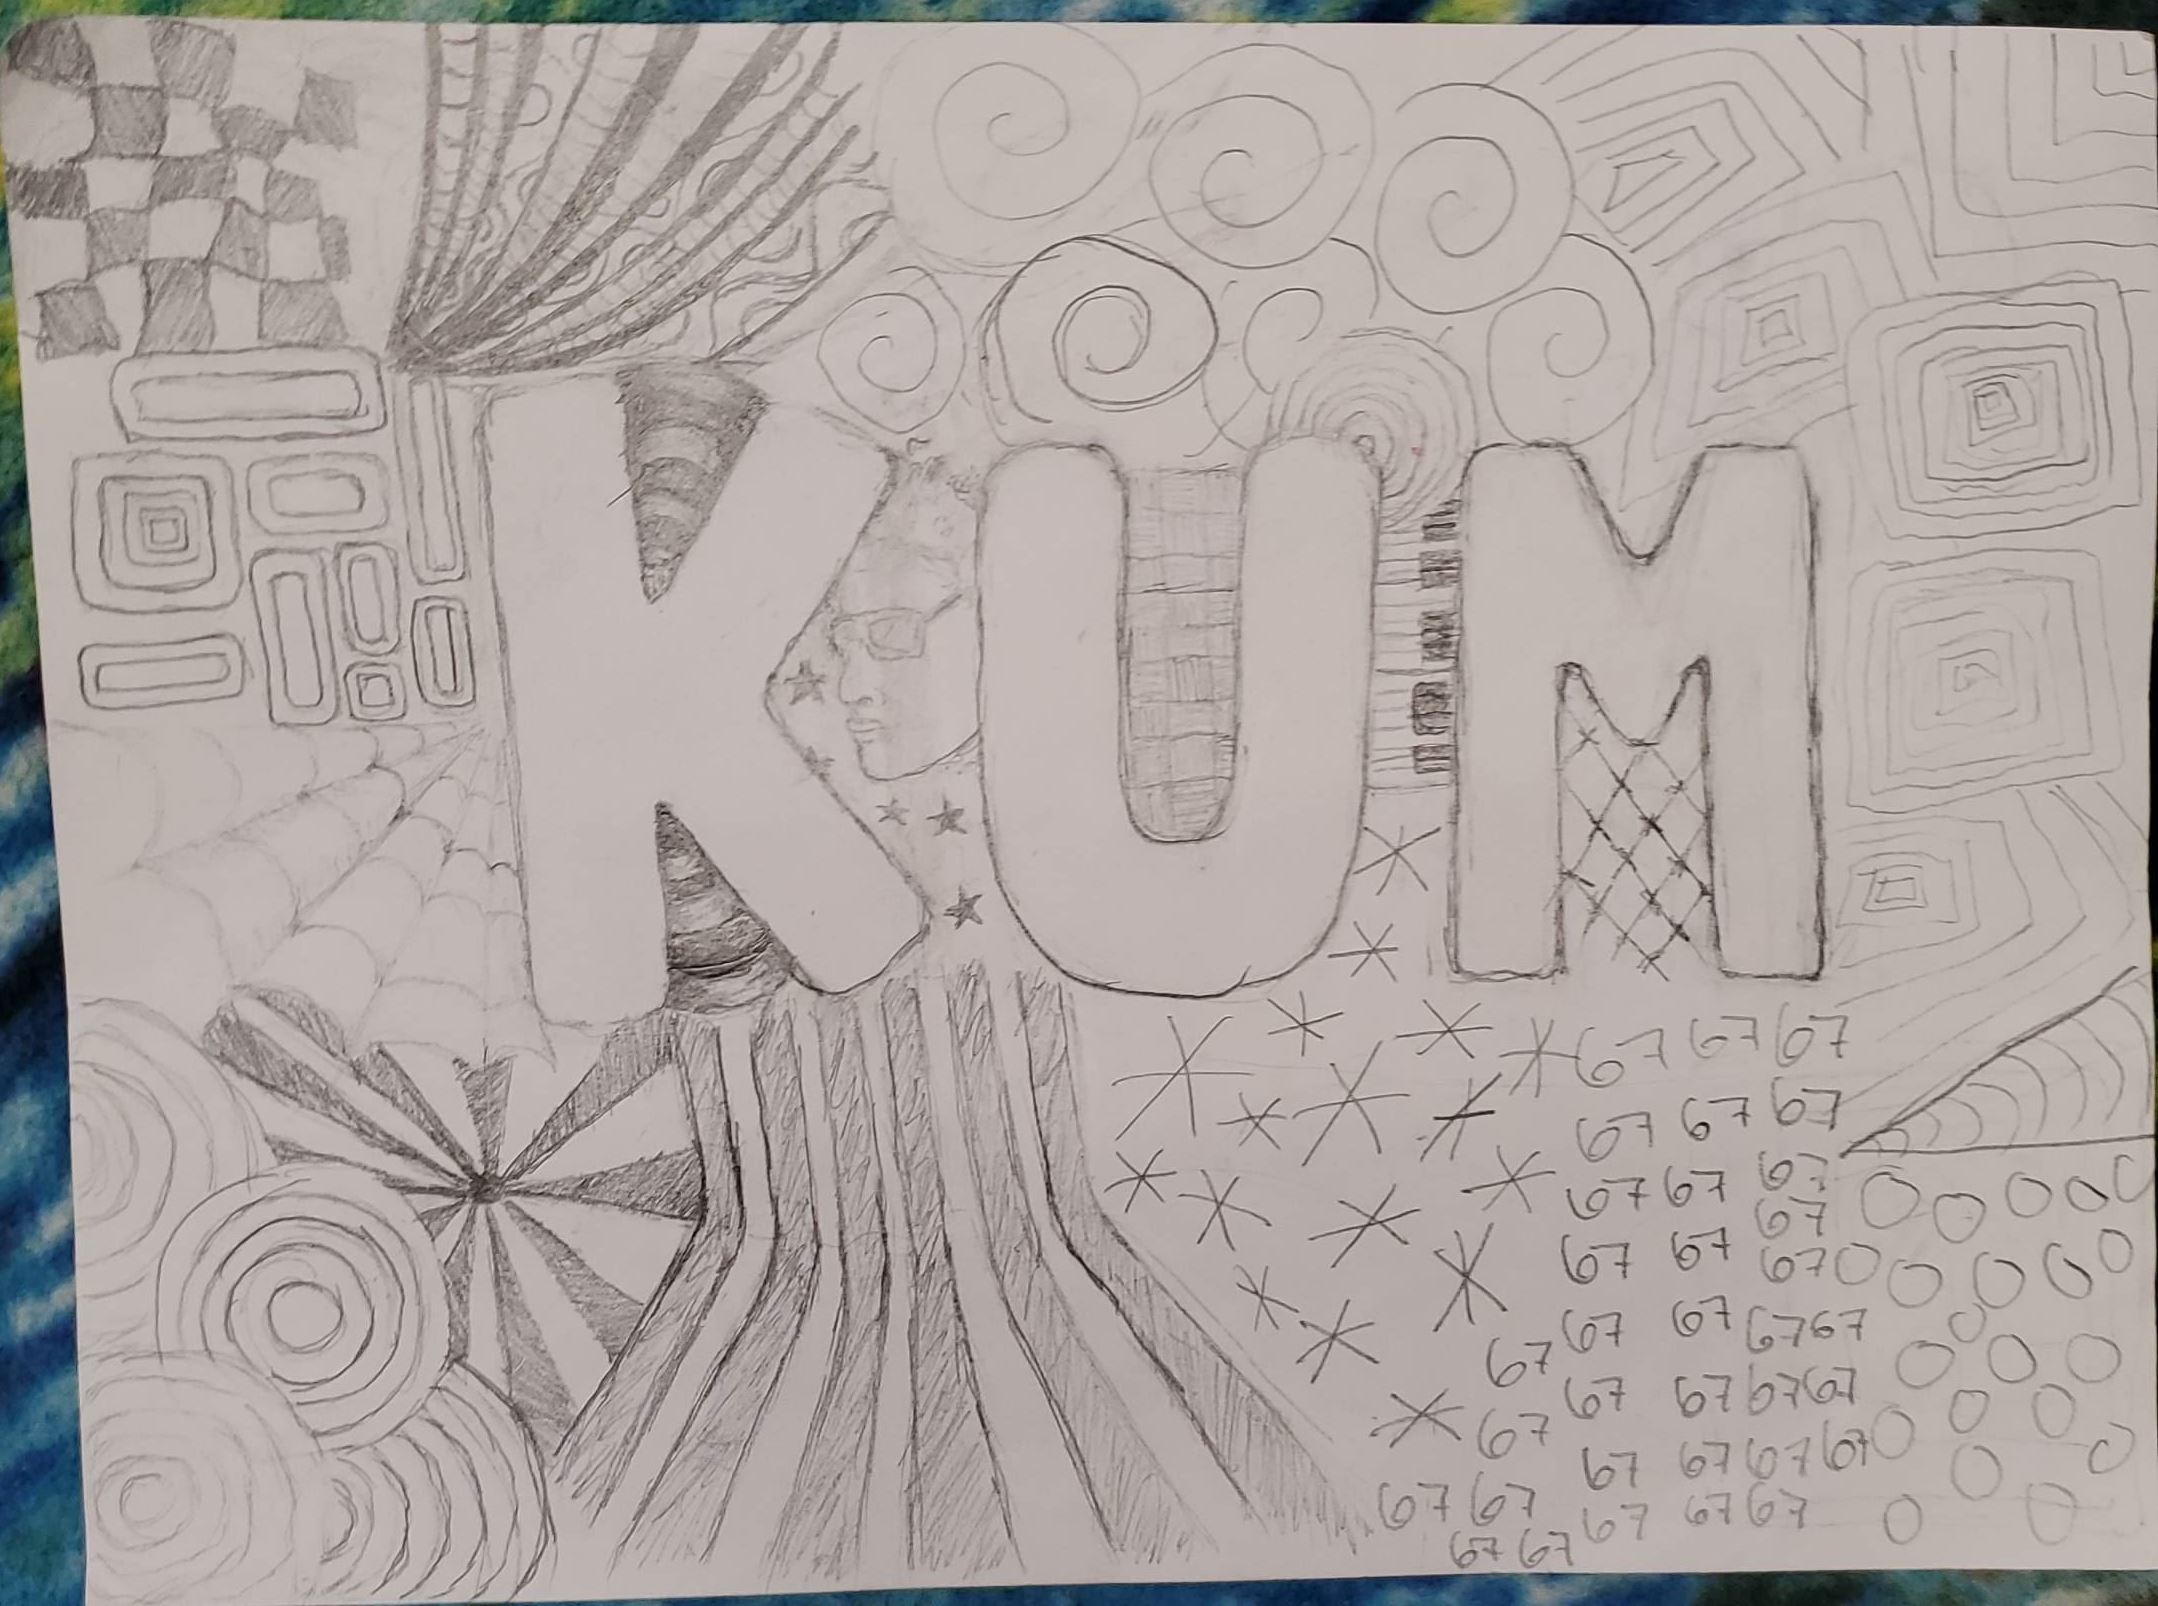 KUM
67 67 67
67 67 67
67 67 67
67
67 67 67
67 67 67 67
67
67 67 67 67
67
67 67 67 67
67 67
67 67 67
67 67